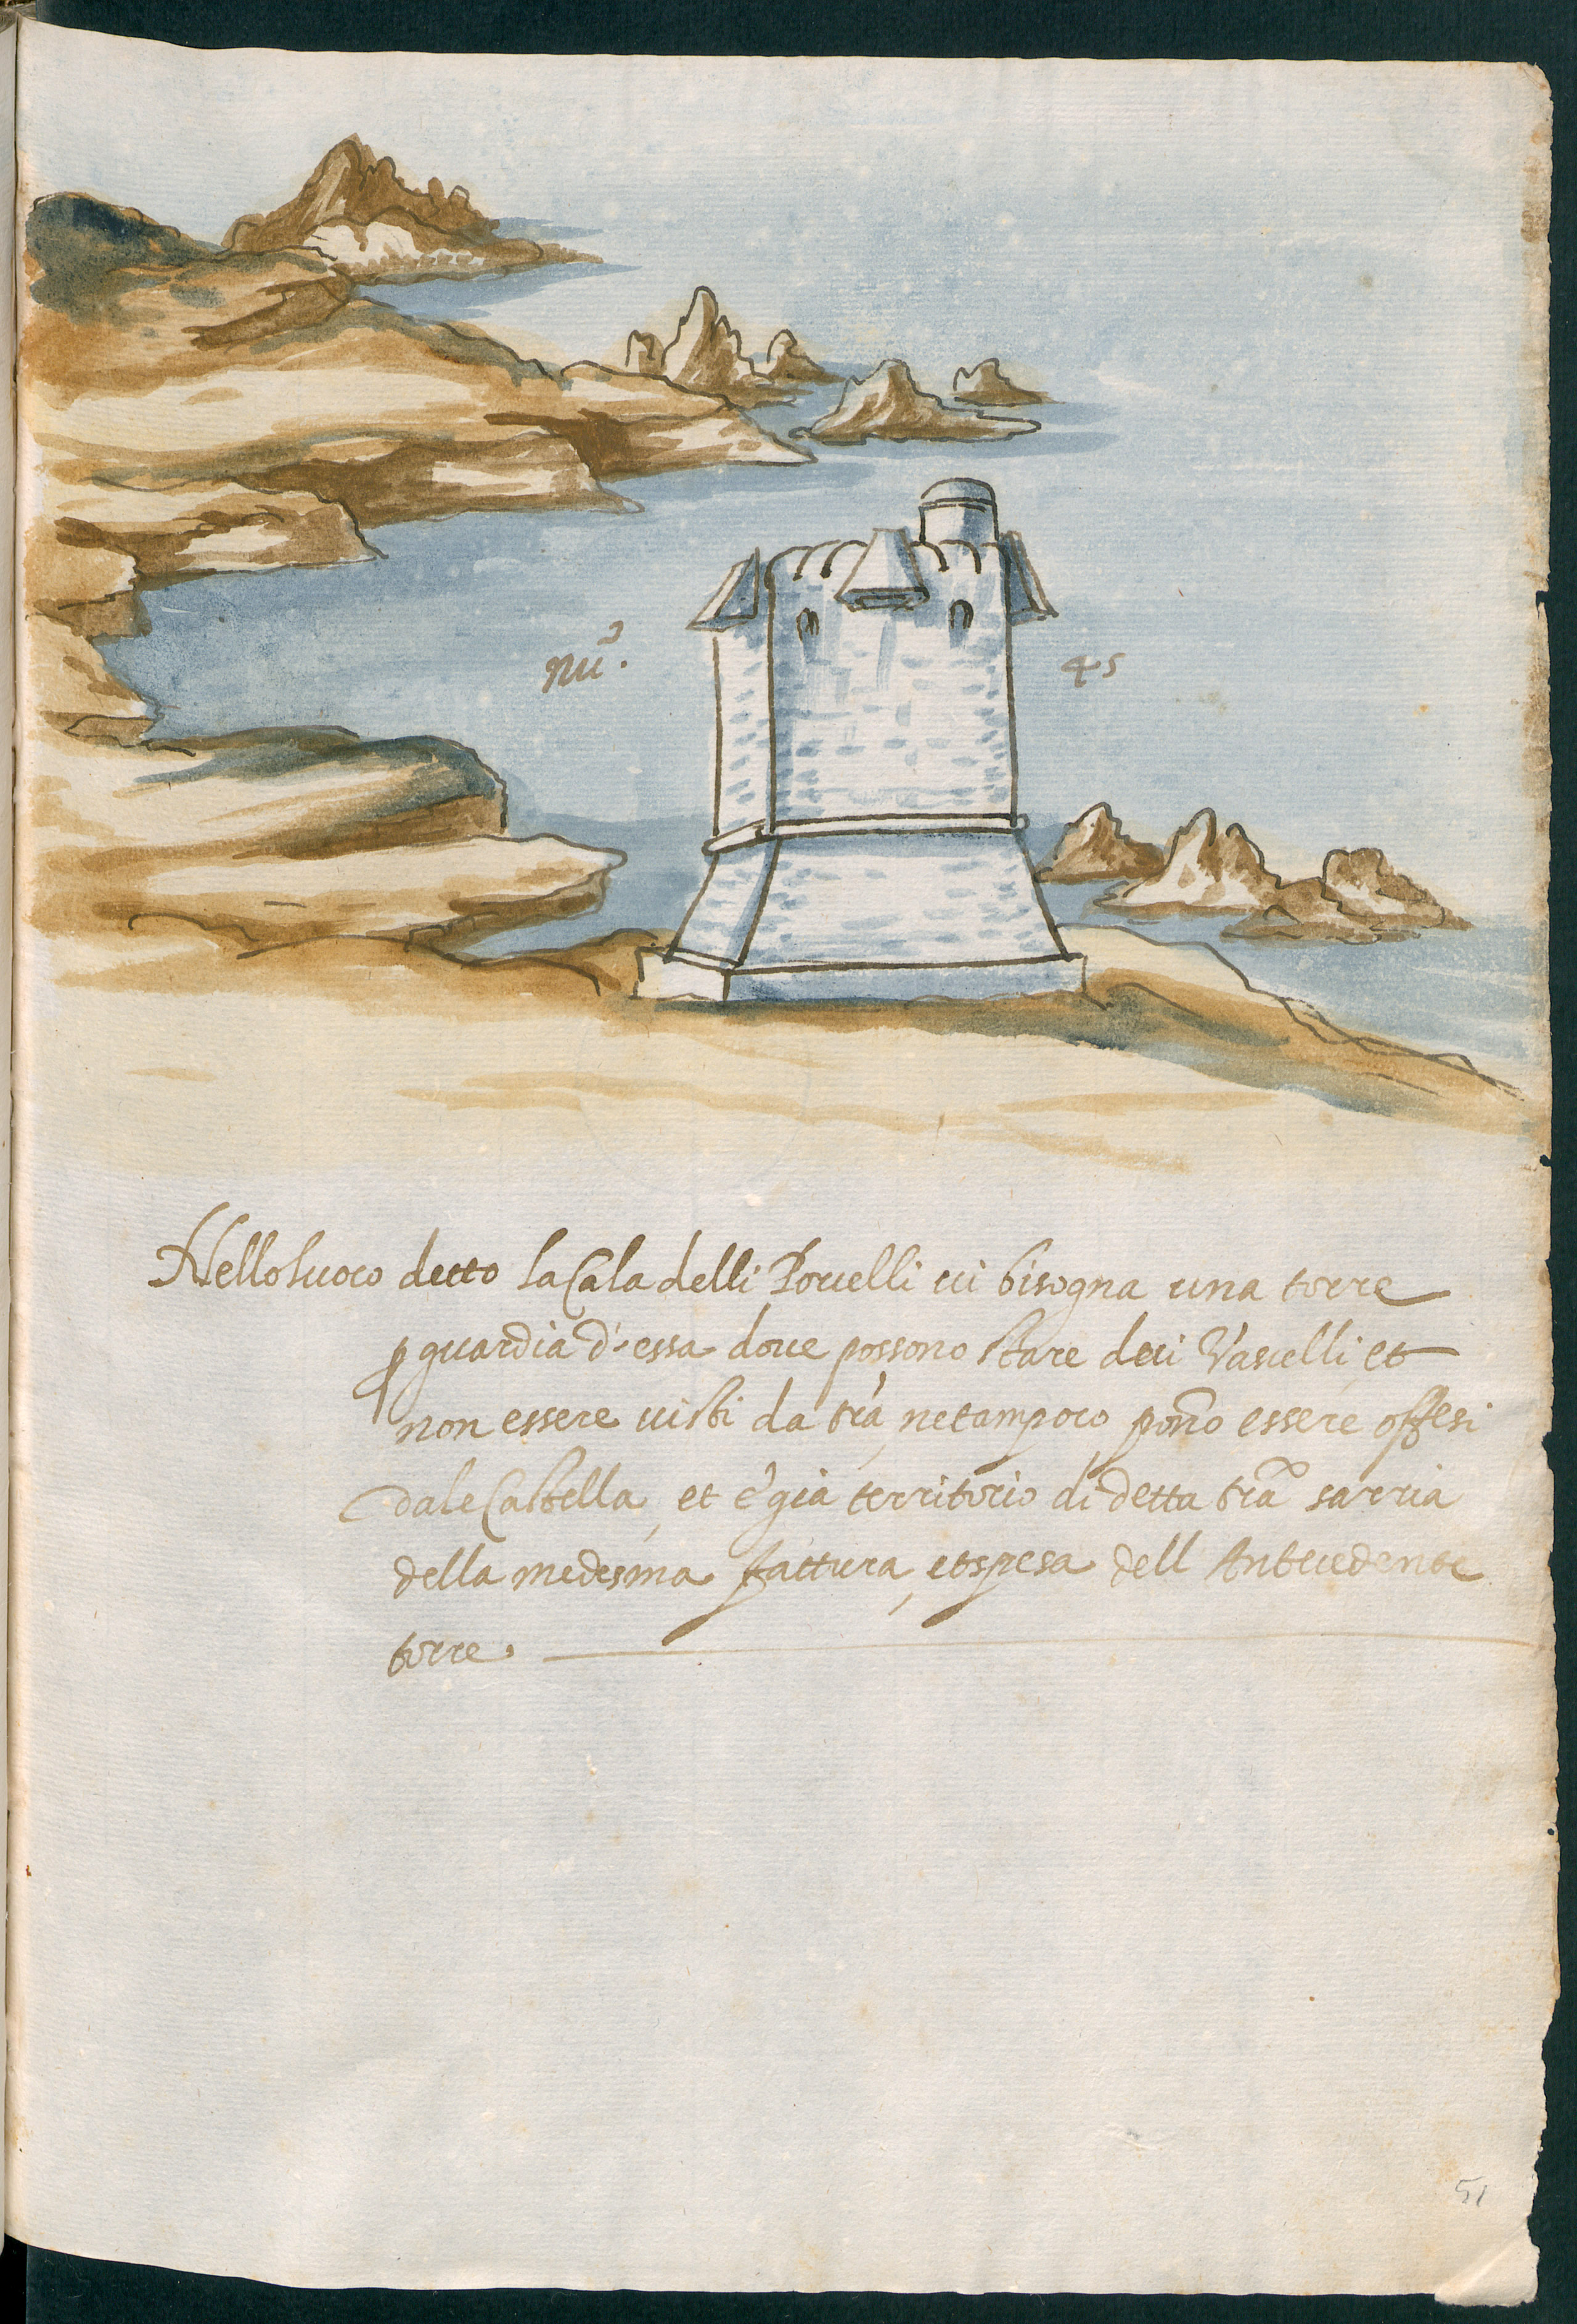 nu.º 45
Nello luoco detto la Cala delli Porcelli vi bisogna una torre
p guardia d'essa dove possono stare deci Vascelli, et
non essere visti da trà, netampoco pono essere offesi
dale Castella, et è già territorio di detta trà sarria
della medesma fattura, et spesa dell Antecedente
torre.
51